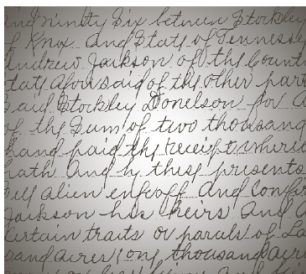 and ninety Six between Stockley
Knox. And State of Tennesse
Andrew Jackson of the Count
tate aforesaid of the other part
said Stockley Donelson for a
of the Sum of two thousand
hand paid the receist where
hath And by these presents
sell alien enfeoff And conf
Jackson his heirs And
certain traits or parcals of La
sand acres (one thousand acr